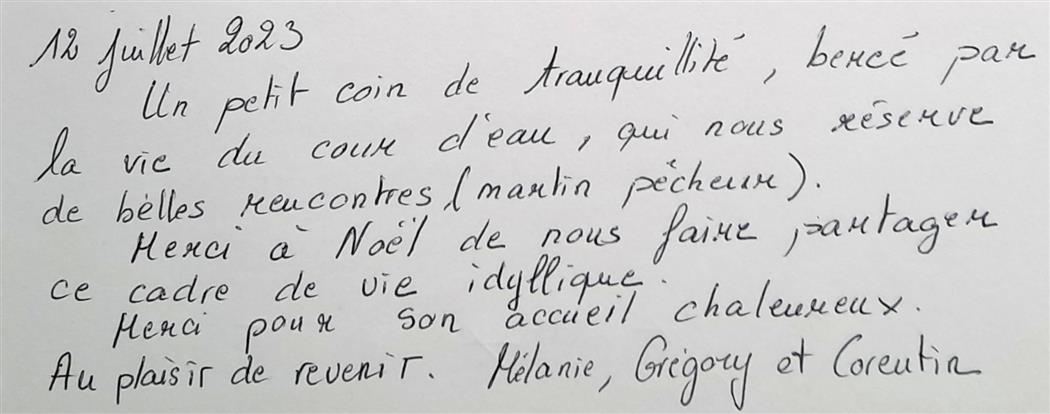 12 juillet 2023
Un petit coin de tranquillité, bercé par
la vie du cour d'eau, qui nous réserve
de bèlles rencontres (martin pêcheur).
Merci à Noël de nous faire partager
ce cadre de vie idyllique.
Merci pour son accueil chaleureux.
Au plaisir de revenir. Mélanie, Grégory et Corentin